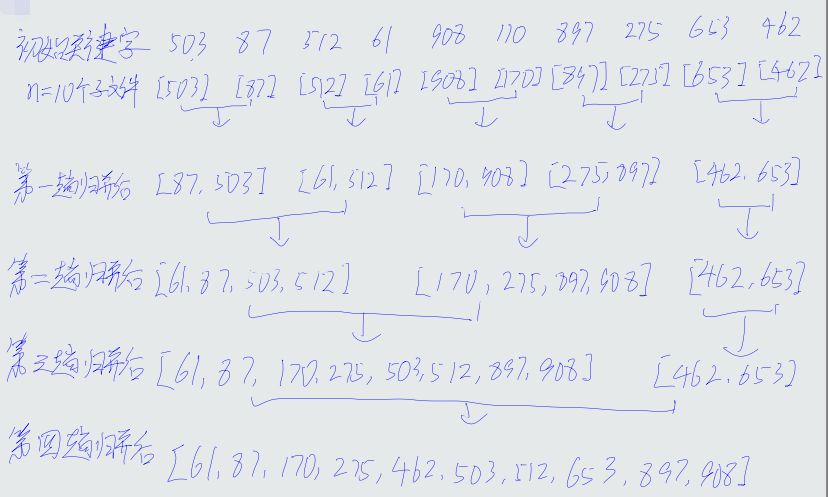 初始关键字 503 87 512 61 908 170 897 275 653 462
n=10个子文件 [503] [87] [512] [61] [908] [170] [897] [275] [653] [462]
第一趟归并后 [87, 503] [61, 512] [170, 908] [275, 897] [462, 653]
第二趟归并后 [61, 87, 503, 512] [170, 275, 897, 908] [462, 653]
第三趟归并后 [61, 87, 170, 275, 503, 512, 897, 908] [462, 653]
第四趟归并后 [61, 87, 170, 275, 462, 503, 512, 653, 897, 908]